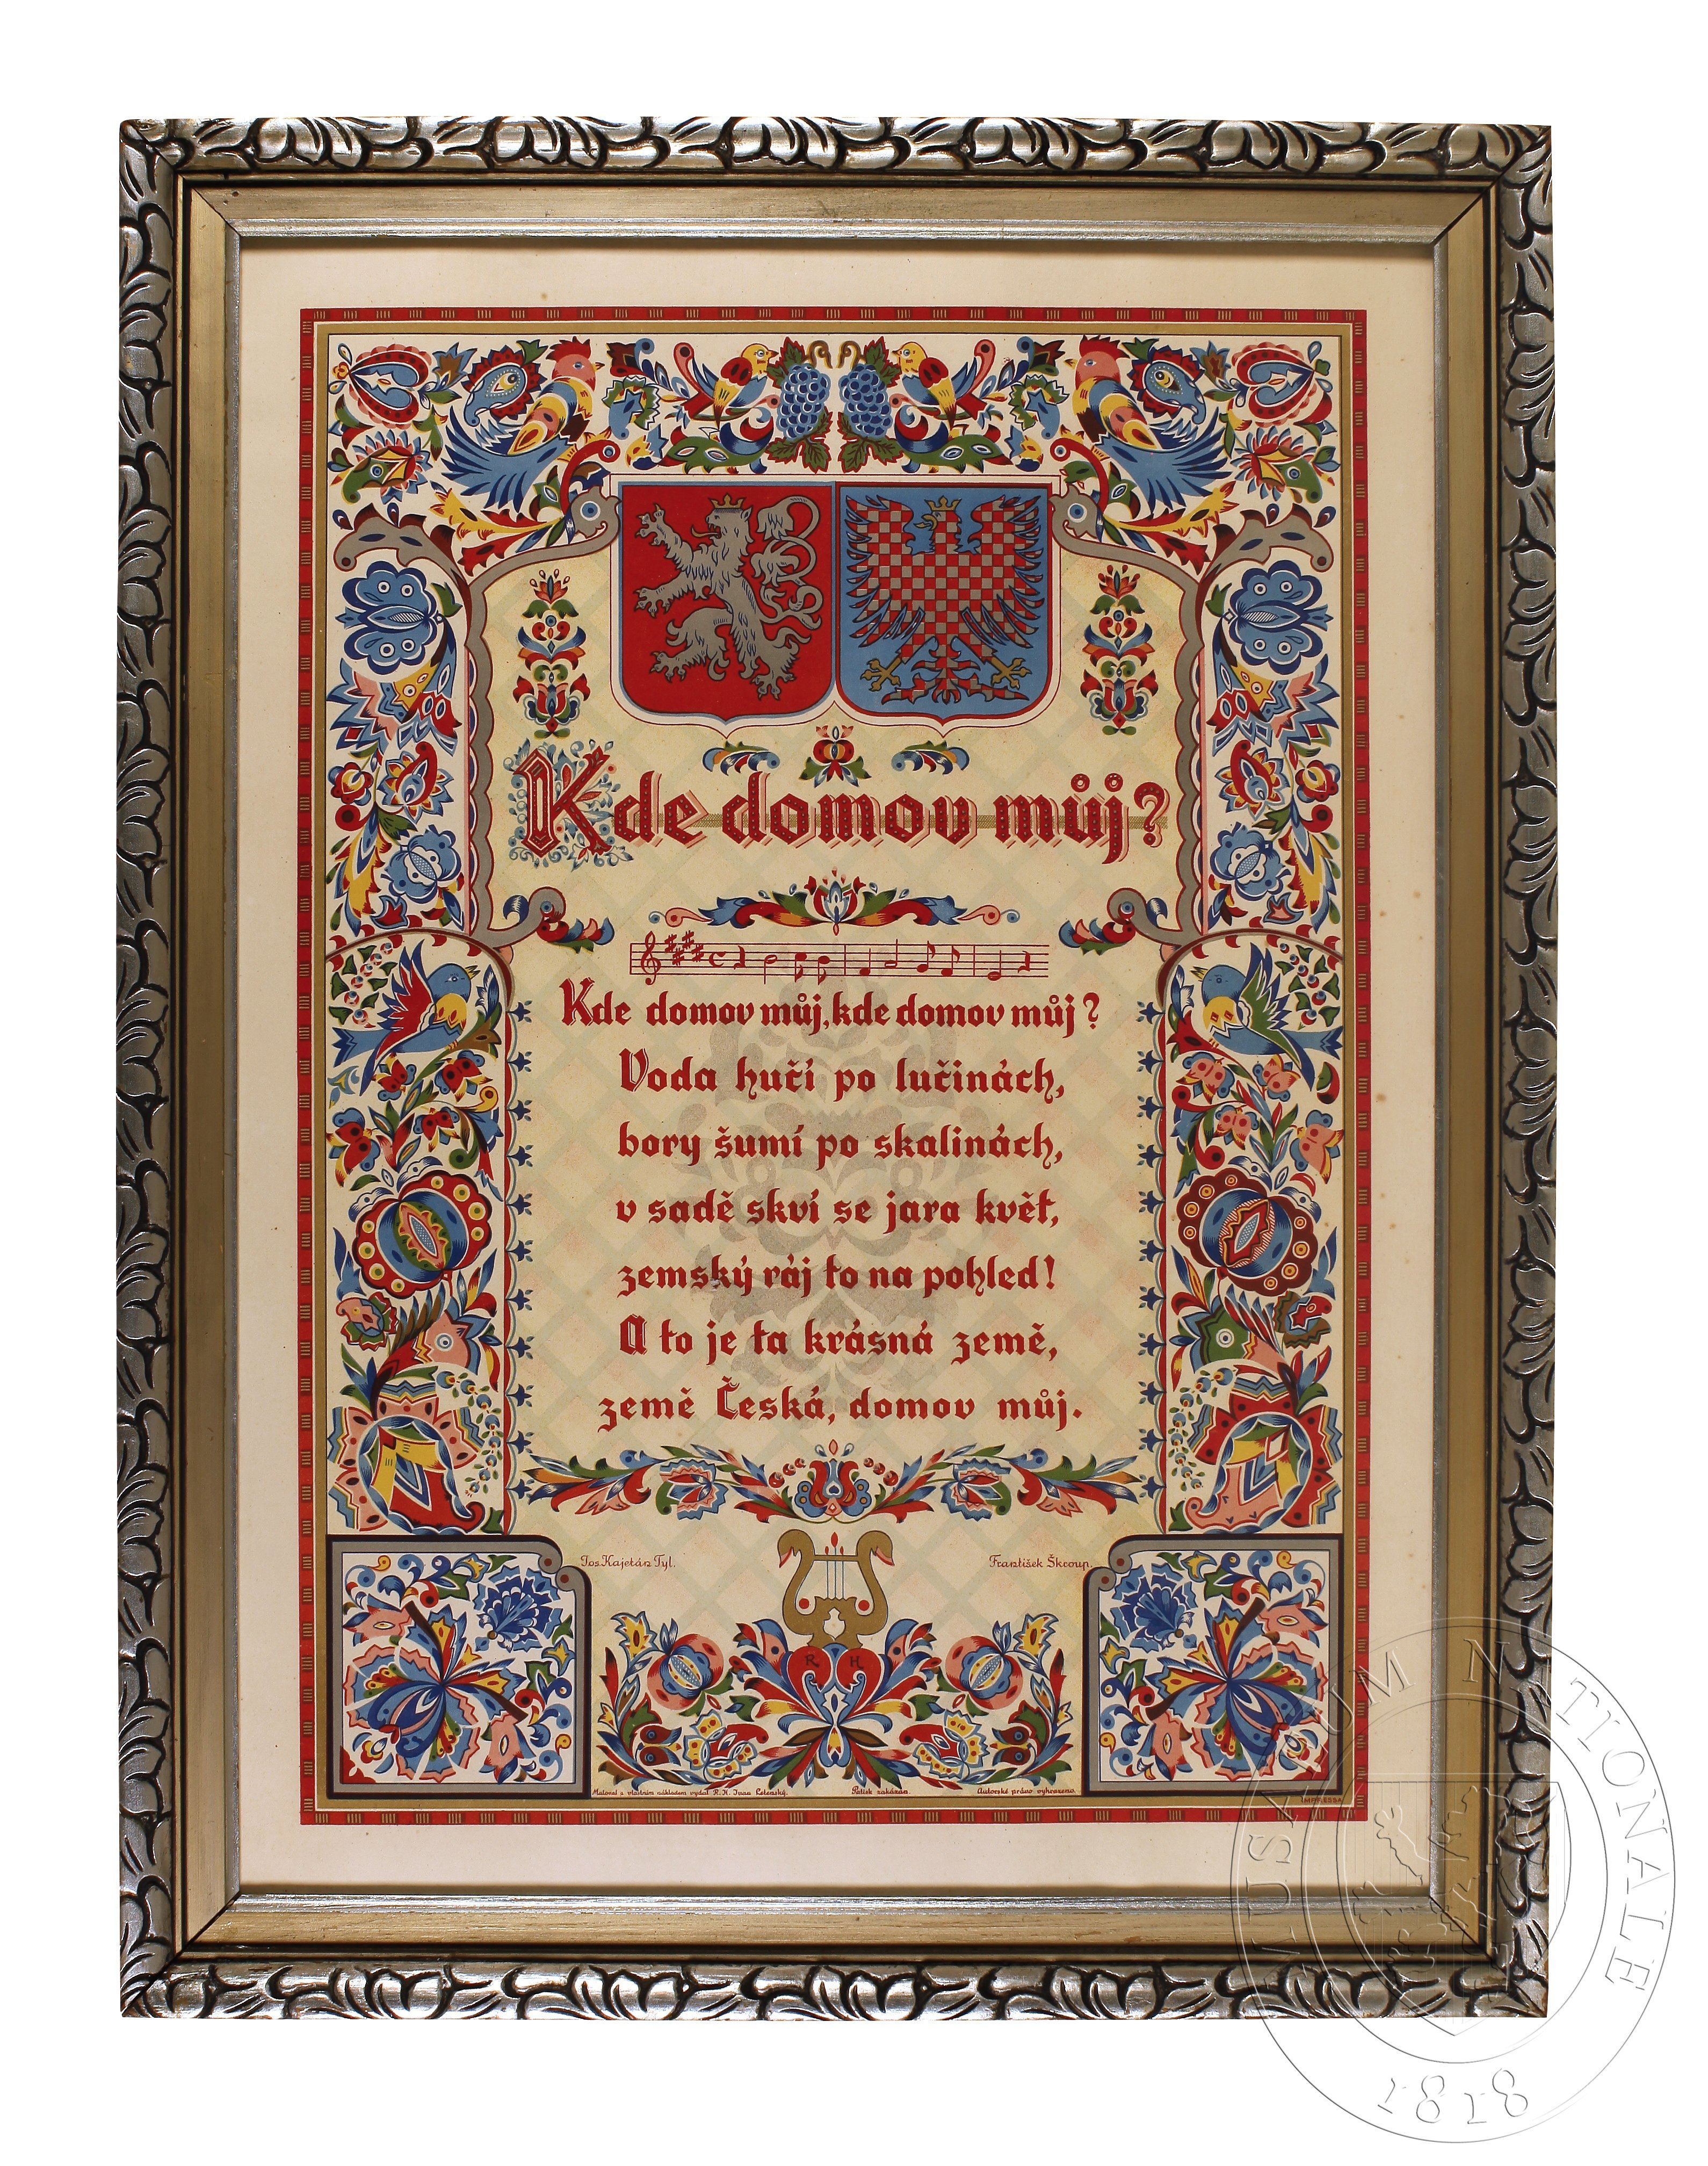 Kde domov můj?
Kde domov můj, kde domov můj?
Voda hučí po lučinách,
bory šumí po skalinách,
v sadě skví se jara květ,
zemský ráj to na pohled!
A to je ta krásná země,
země Česká, domov můj.
Jos Kajetán Tyl.
František Škroup.
R H
Maloval a vlastním nákladem vydal R. H. Ivan Letenský. Patisk zakázán. Autorské právo vyhrazeno.
IMPRESSA
MUSAEUM NATIONALE
1818